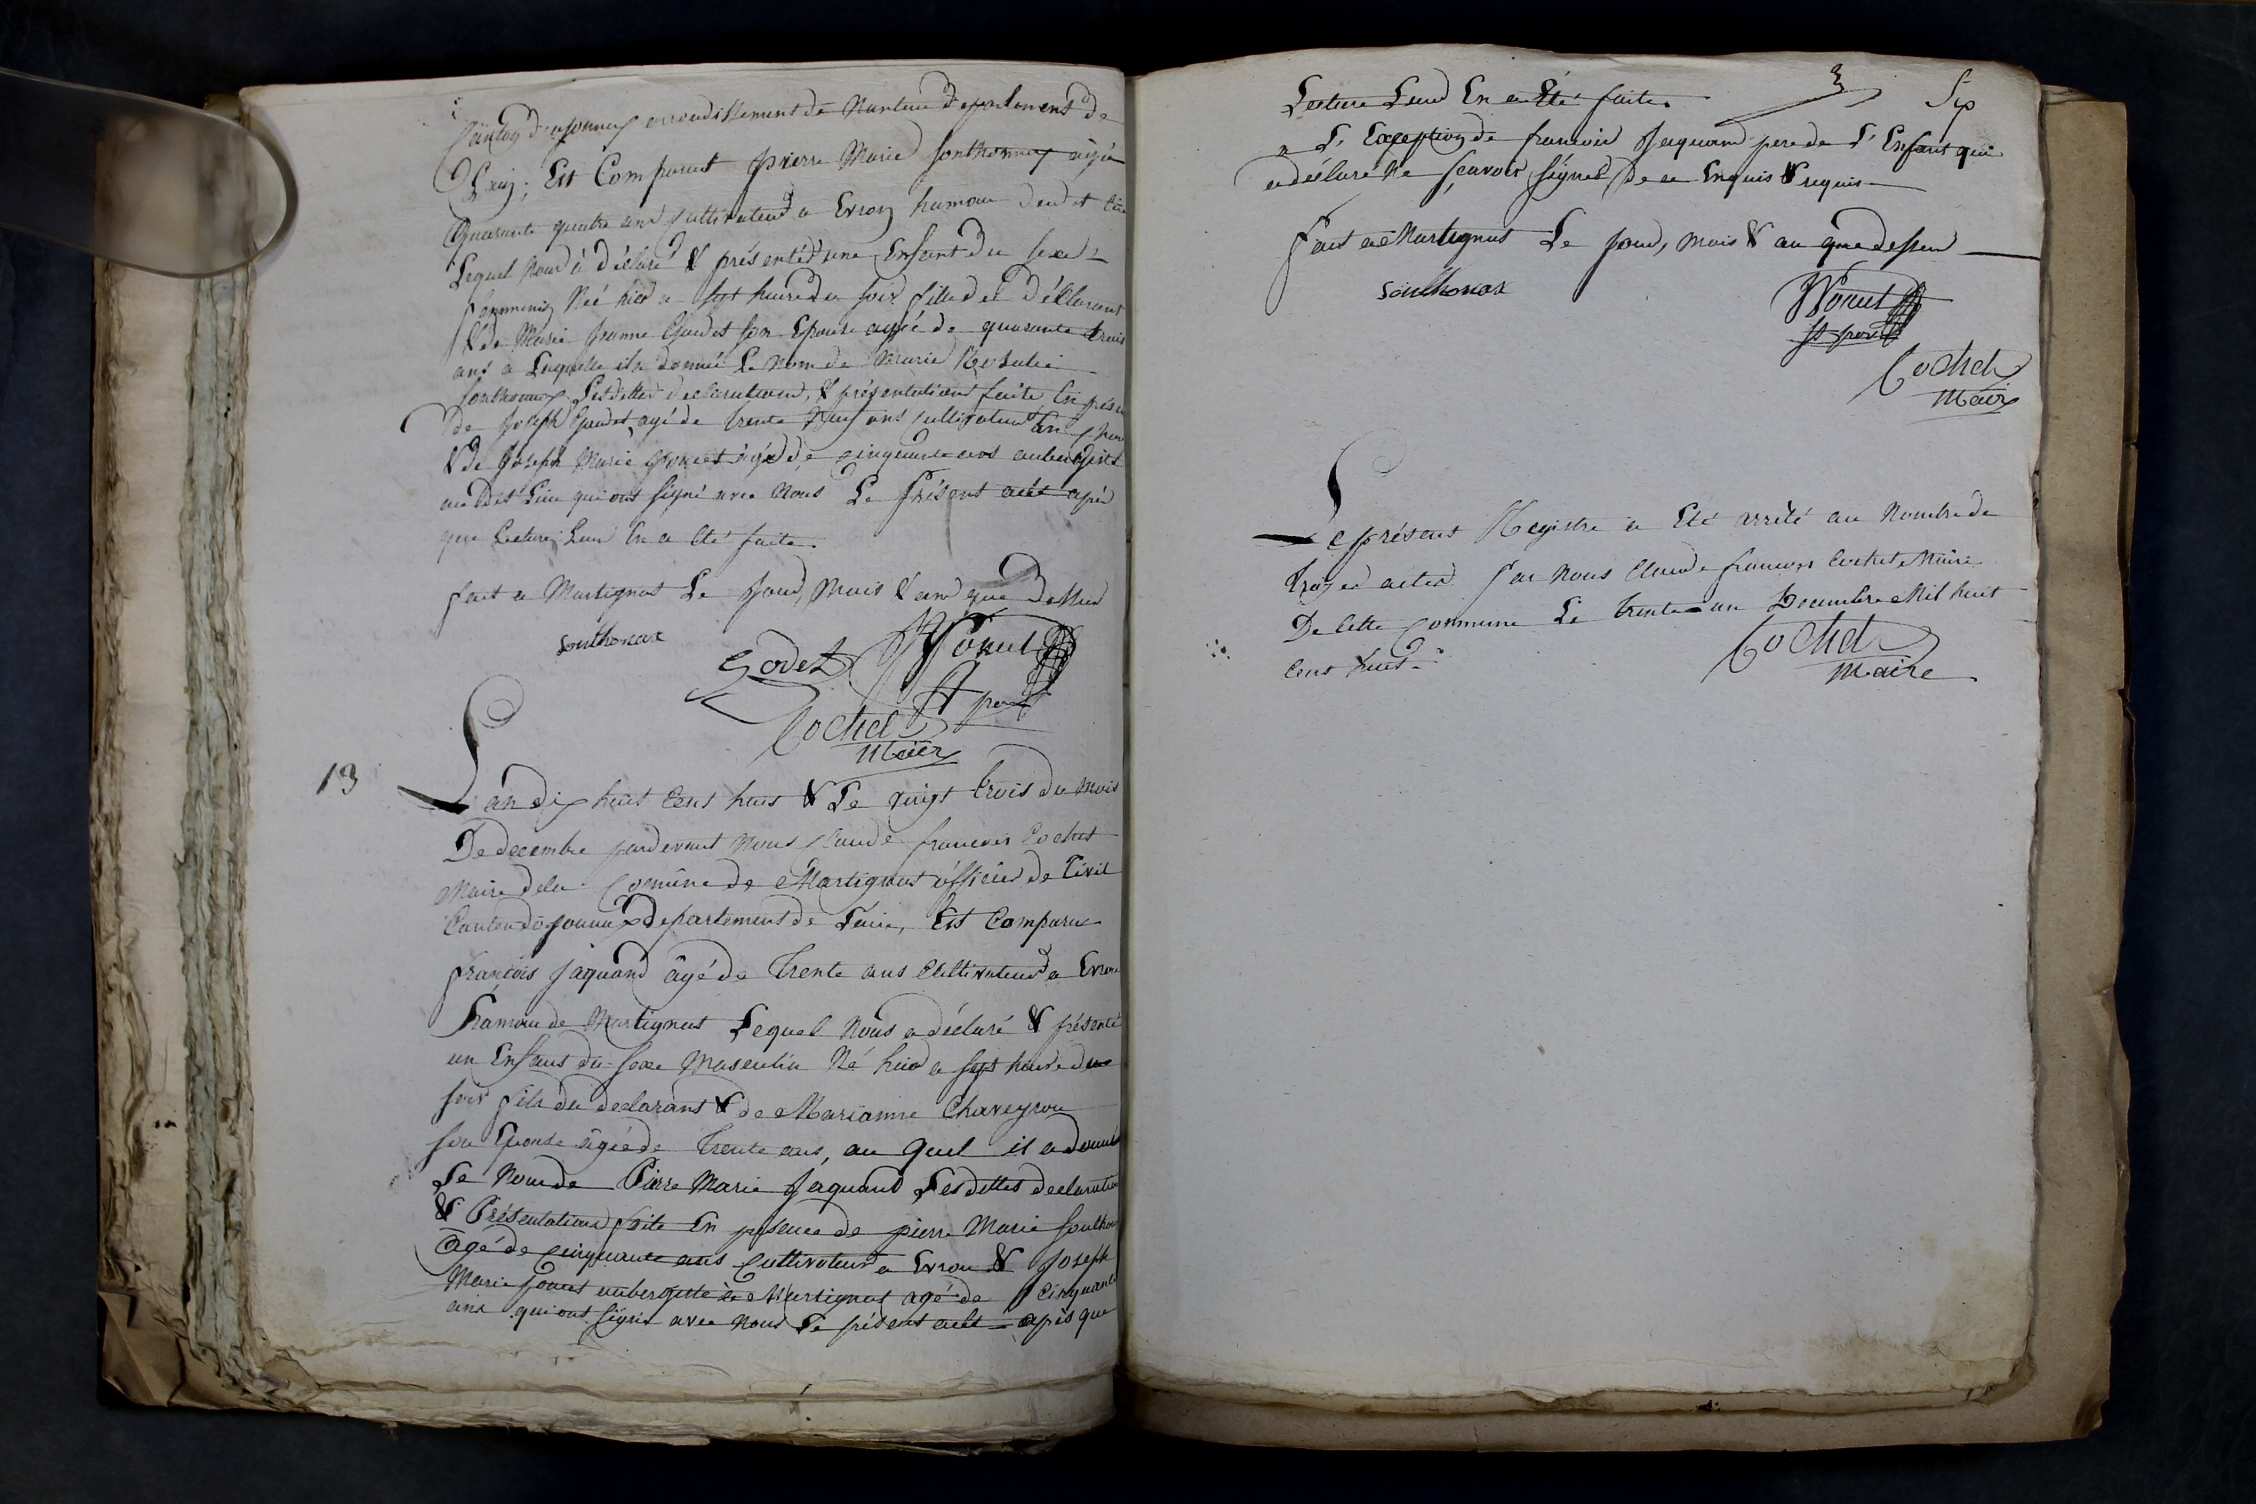 Canton d'oyonnax arrondissement de Nantua departement de
L'ain; Est Comparut pierre Marie Sonthonnax agé de
Quarante quatre ans Cultivateur a Evron hamau dudit lieu
Lequel Nous à déclaré & présenté une Enfant du sexe
femminin Née hier a sept heure du soir fille du Déclarant
& de Marie Jeanne Gaudet son Epouse agée de quarante trois
ans a Laquelle il a donné Le Nom de Marie Rosalie
Sonthonnax Lesdittes declarations, & présentations faite En présence
de Joseph Gaudet agé de trente neuf ans cultivateur
& de Joseph Marie Poncet agé de cinquante ans aubergiste
audit Lieu qui ont signé avec Nous Le présent acte après
que Lecture Leur En a été faite.
fait a Martignat Le Jour, Mois & an que Dessus
Sonthonax
Godet Poncet
Cochet
Maire
13
L'an dix huit Cent huit & Le vingt trois du Mois
De decembre pardevant Nous Claude francois Cochet
Maire de la Comûne de Martignat officier de Civil
Canton d'oyonnax departement de L'ain, Est Comparu
françois Jaquand âgé de Trente ans Cultivateur a Evron
hamau de Martignat Lequel Nous a déclaré & présenté
un Enfant du sexe Masculin Né hier a sept heure du
soir fils du declarant & de Marianne Chaveyron
son Epouse agée de Trente ans, au quel il a donné
Le Nom de Pierre Marie Jaquand Lesdittes declaration
& Présentations faite En présence de pierre Marie Sonthonax
âgé de Cinquante ans Cultivateur a Evron & Joseph
Marie Poncet aubergiste à Martignat agé de Cinquante
ans qui ont signé avec Nous Le présent acte après que
Six
Lecture Leur En a Eté faite.
a L'Exception de francois Jaquand pere de L'Enfant qui
a déclaré Ne sçavoir signé de ce Enquis & requis
fait a Martignat Le Jour, mois & an que dessus
Sonthonax
Poncet
Cochet
Maire
Le présent Registre a Eté arrêté au Nombre de
treze actes Par Nous Claude francois Cochet Maire
De Cette Commune Le trente un Decembre Mil huit
Cent huit.
Cochet
Maire